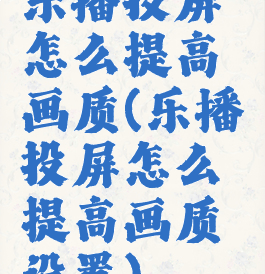 乐播投屏
怎么提高
画质(乐播
投屏怎么
提高画质
设置)